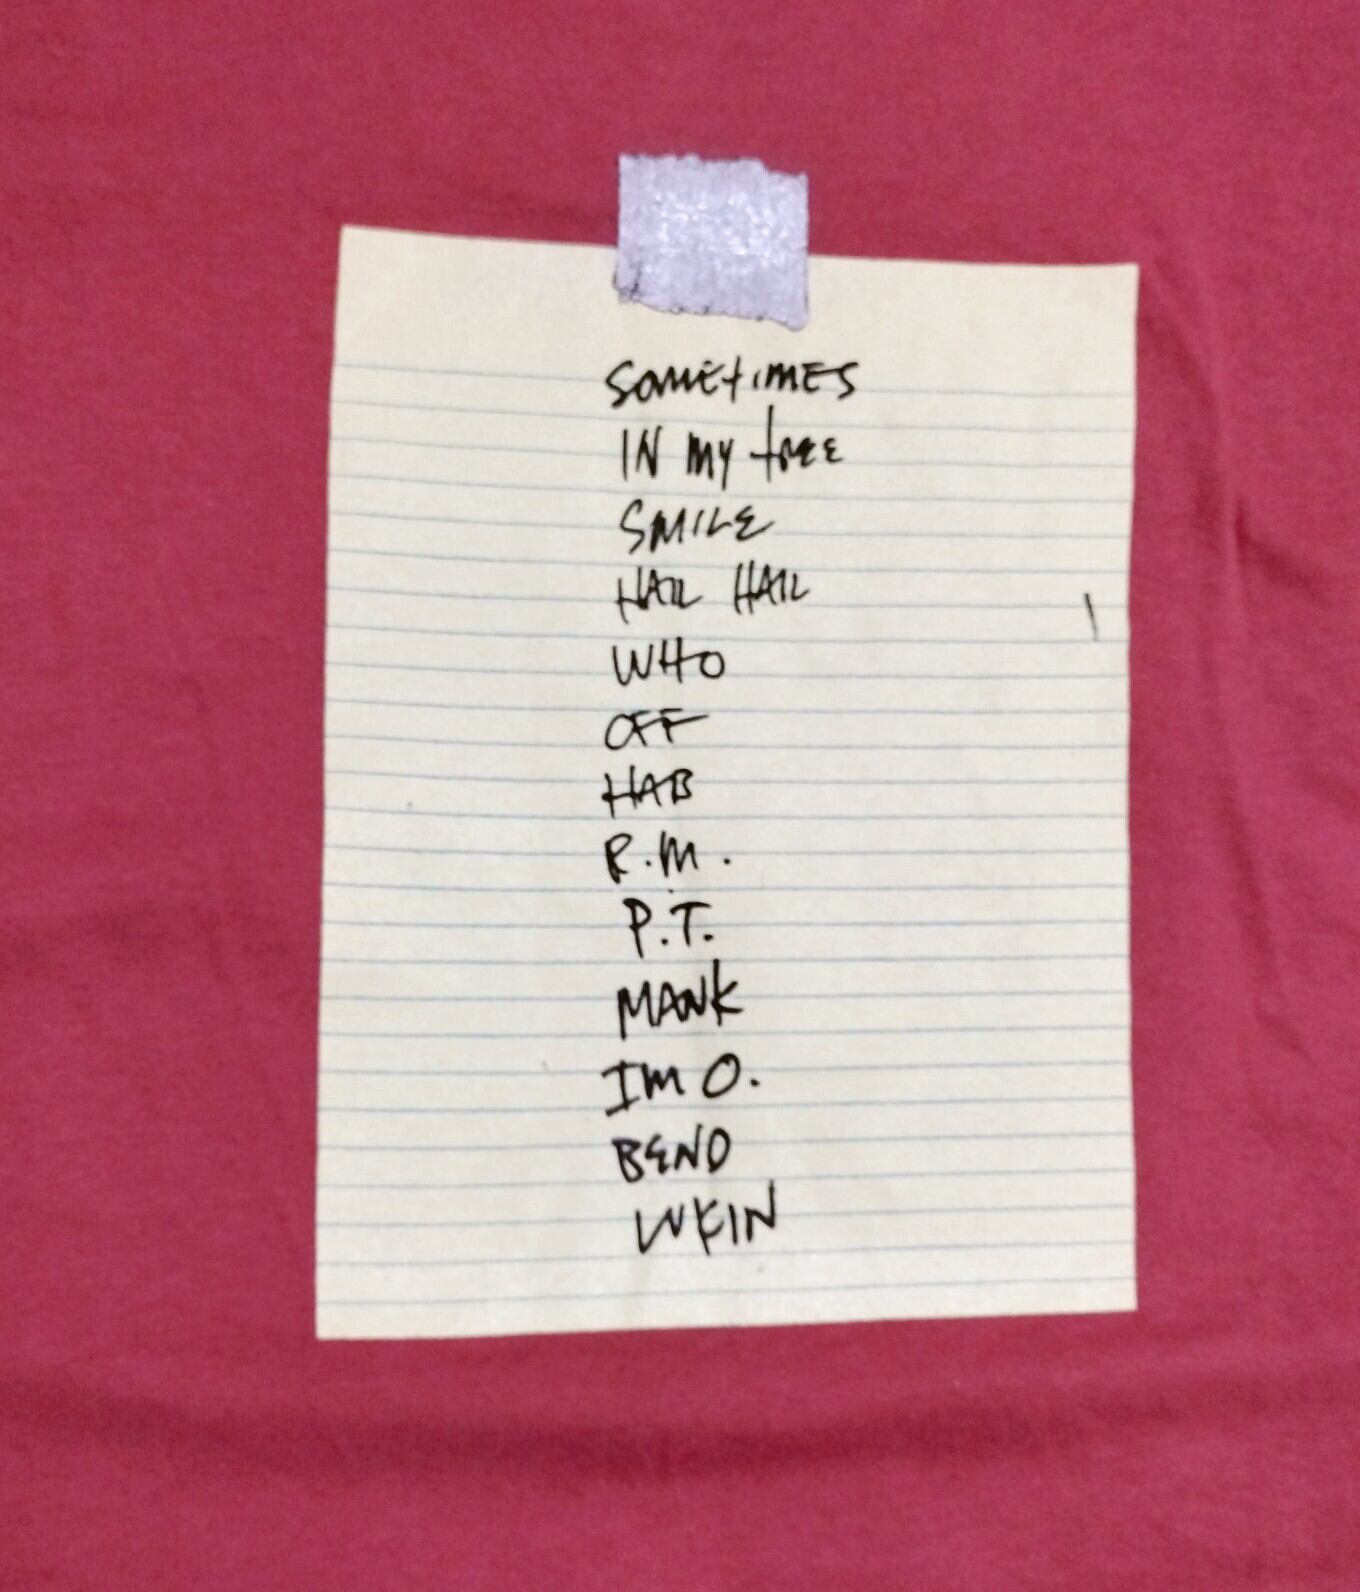 SOMETIMES
IN MY tREE
SMILE
HAIL HAIL
WHO
OFF
HAB
R.M.
P.T.
MANK
IM O.
BEND
LUKIN